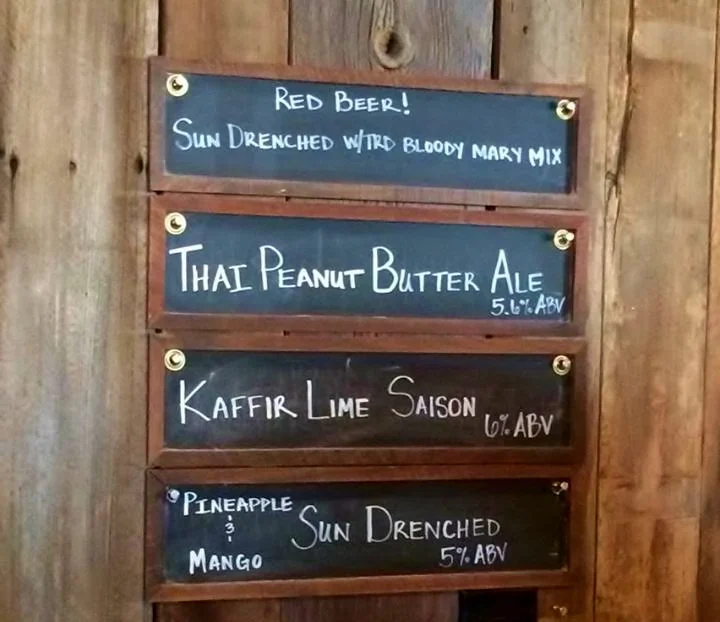 RED BEER!
SUN DRENCHED W/TRD BLOODY MARY MIX
THAI PEANUT BUTTER ALE
5.6% ABV
KAFFIR LIME SAISON
6% ABV
PINEAPPLE
&
MANGO
SUN DRENCHED
5% ABV